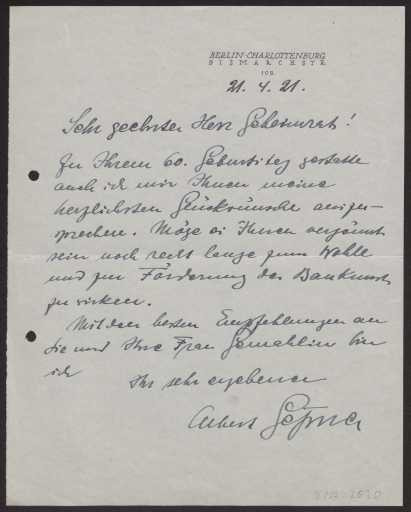 BERLIN-CHARLOTTENBURG
BISMARCKSTR
109
21. 4. 21.
Sehr geehrter Herr Geheimrat!
Zu Ihrem 60. Geburtstag gestatte
auch ich mir Ihnen meine
herzlichsten Glückwünsche auszu-
sprechen. Möge es Ihnen vergönnt
sein noch recht lange zum Wohle
und zur Förderung der Baukunst
zu wirken.
Mit den besten Empfehlungen an
Sie und Ihre Frau Gemahlin bin
ich
Ihr sehr ergebener
Albert Geßner